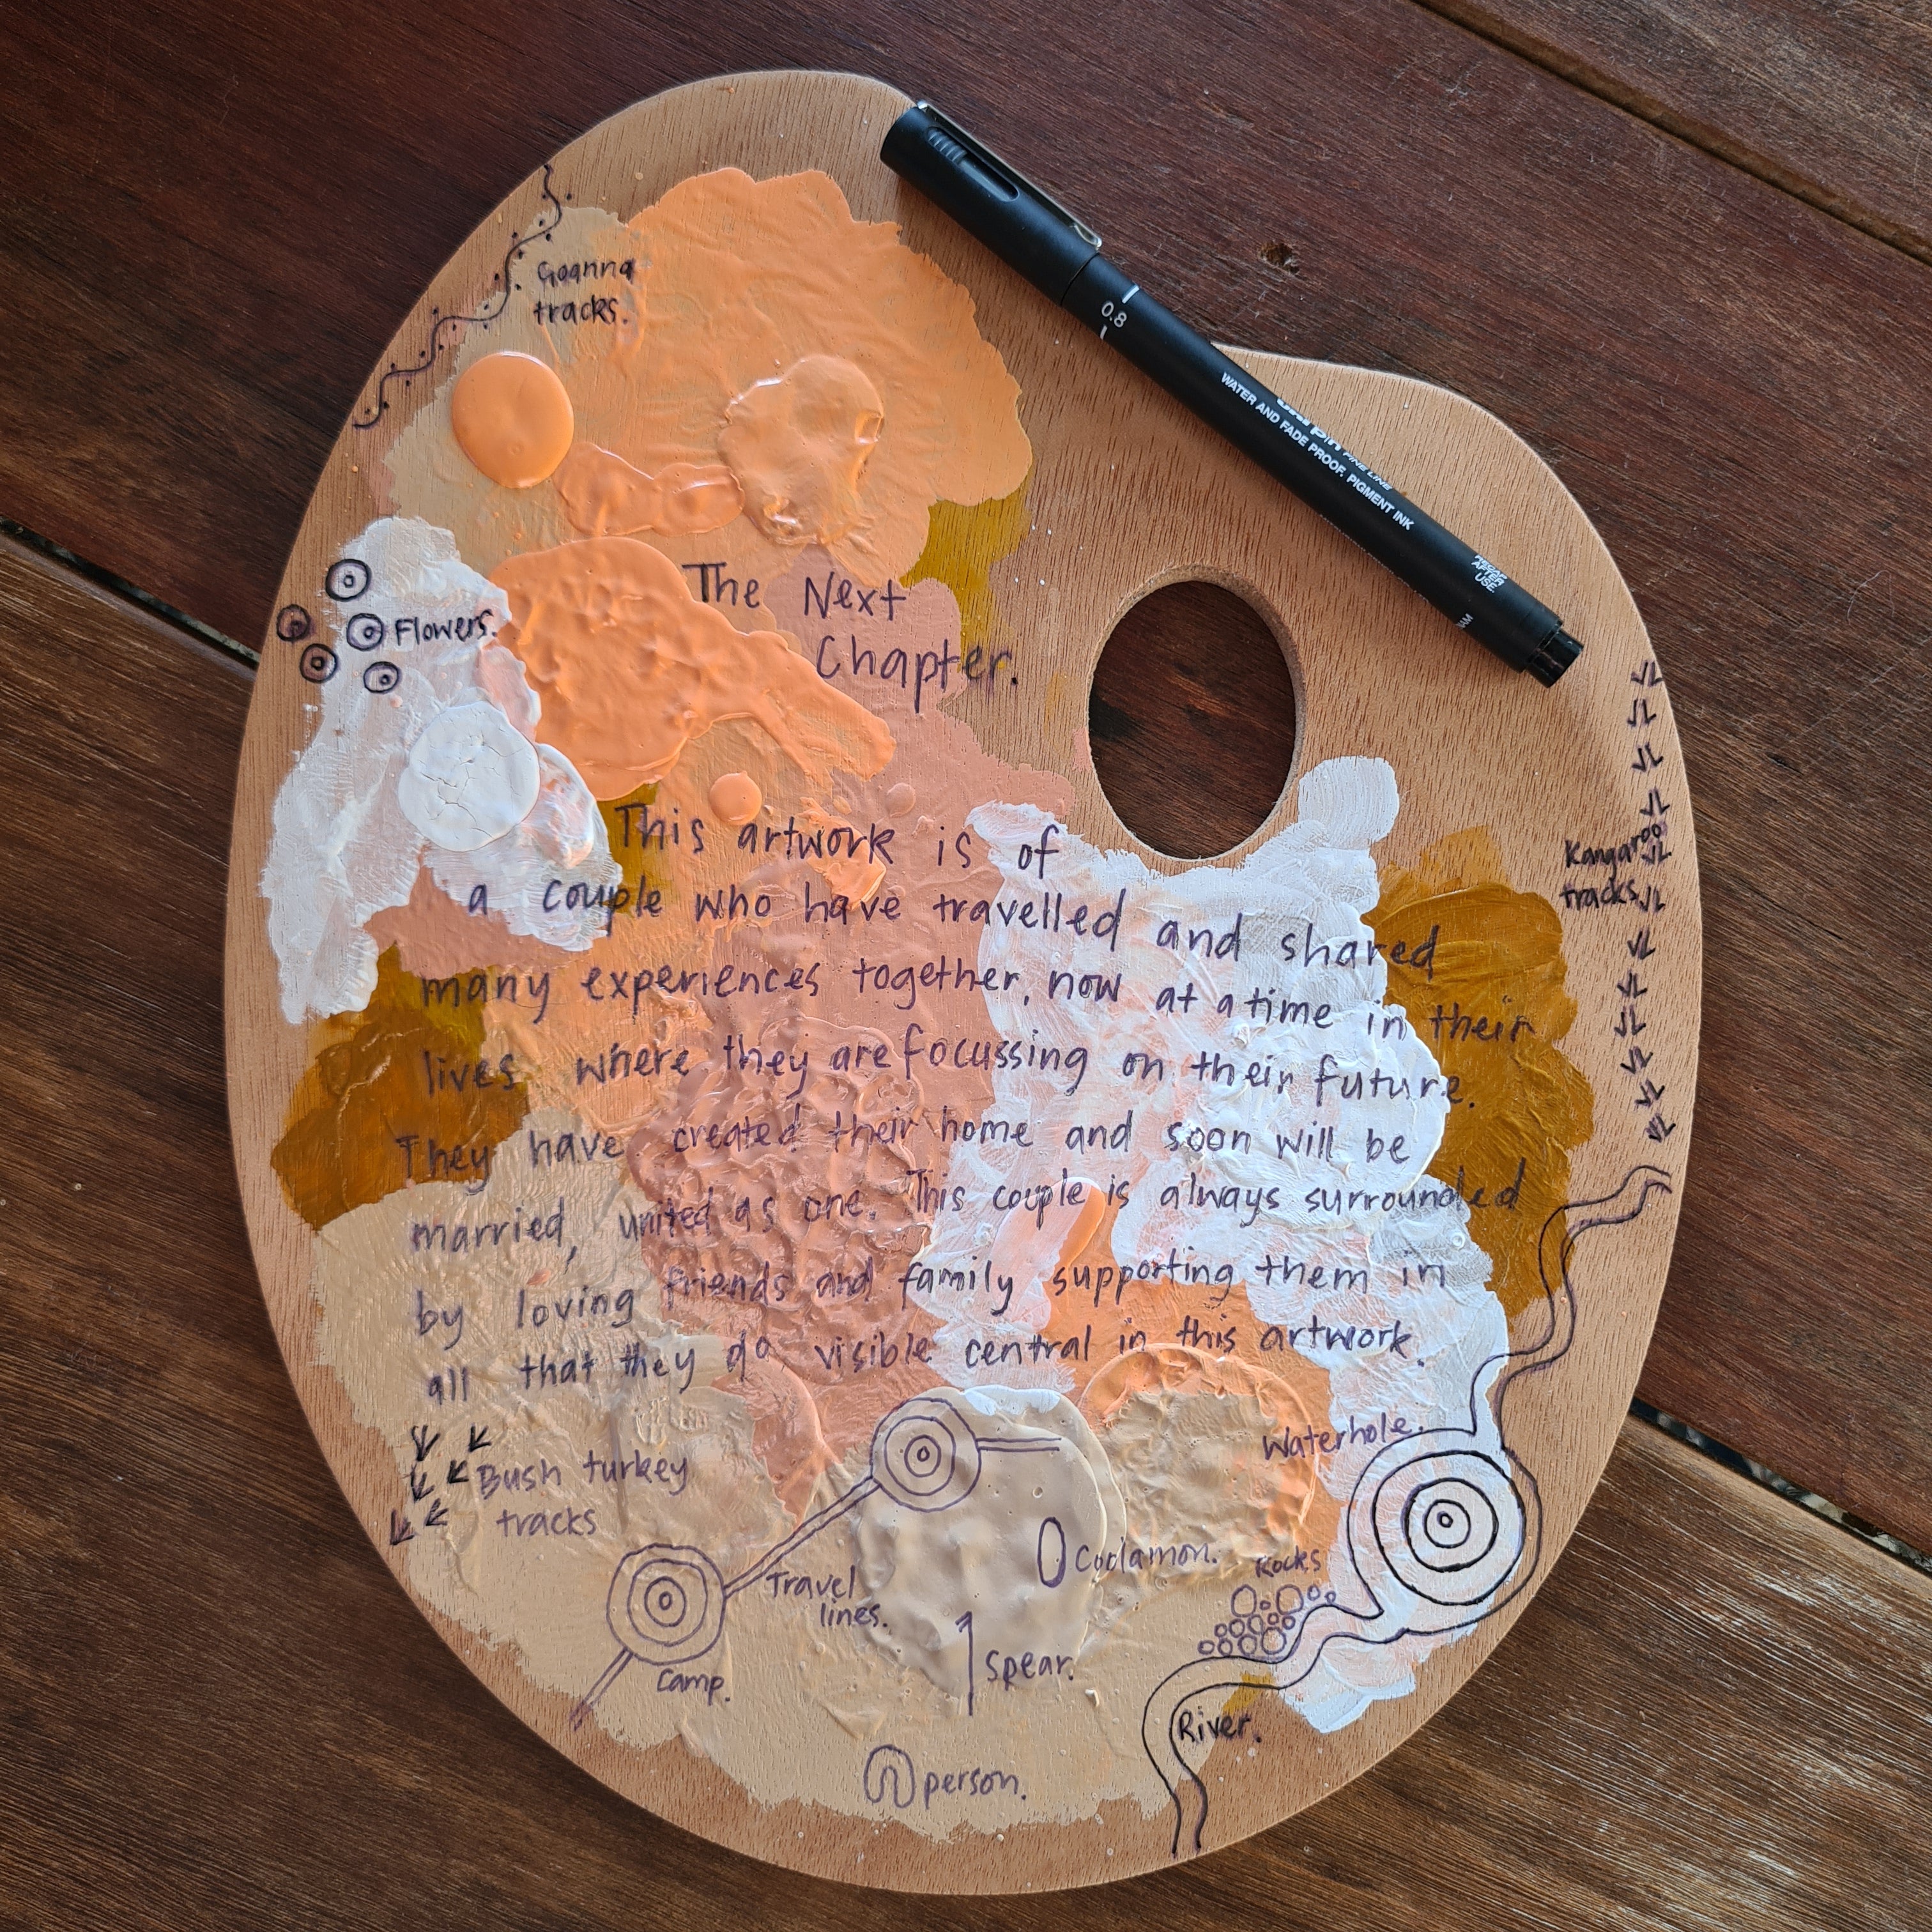 Goanna
tracks.
0.8
FINE LINE
WATER AND FADE PROOF. PIGMENT INK
AFTER
USE
The Next
Chapter.
Flowers.
This artwork is of
a couple who have travelled and shared
many experiences together, now at a time in their
lives where they are focussing on their future.
They have created their home and soon will be
married, united as one. This couple is always surrounded
by loving friends and family supporting them in
all that they do visible central in this artwork.
Kangaroo
tracks.
Bush turkey
tracks
Waterhole.
Coolamon.
Rocks
Travel
lines.
Spear.
Camp.
River.
person.